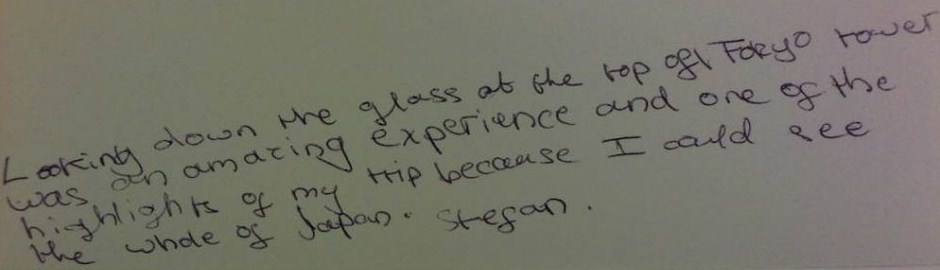 Looking down the glass at the top of Tokyo tower
was an amazing experience and one of the
highlights of my trip because I could see
the whole of Japan. Stefan.